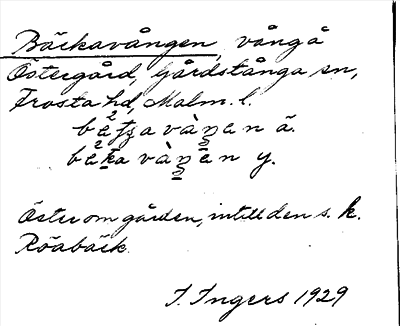 Bäckavången, vång å
Östergård, Gårdstånga sn,
Frosta hd, Malm. l.
ä.
y.
Öster om gården, intill den s. k.
Röabäck.
I. Ingers 1929